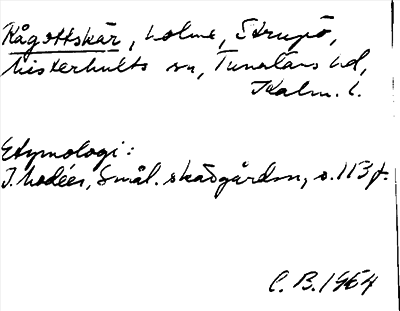 Rågottskär, holme, Strupö,
Misterhults sn, Tunaläns hd,
Kalm. l.
Etymologi:
I. Modéer, Smål. skärgården, s. 113 f.
C. B. 1964